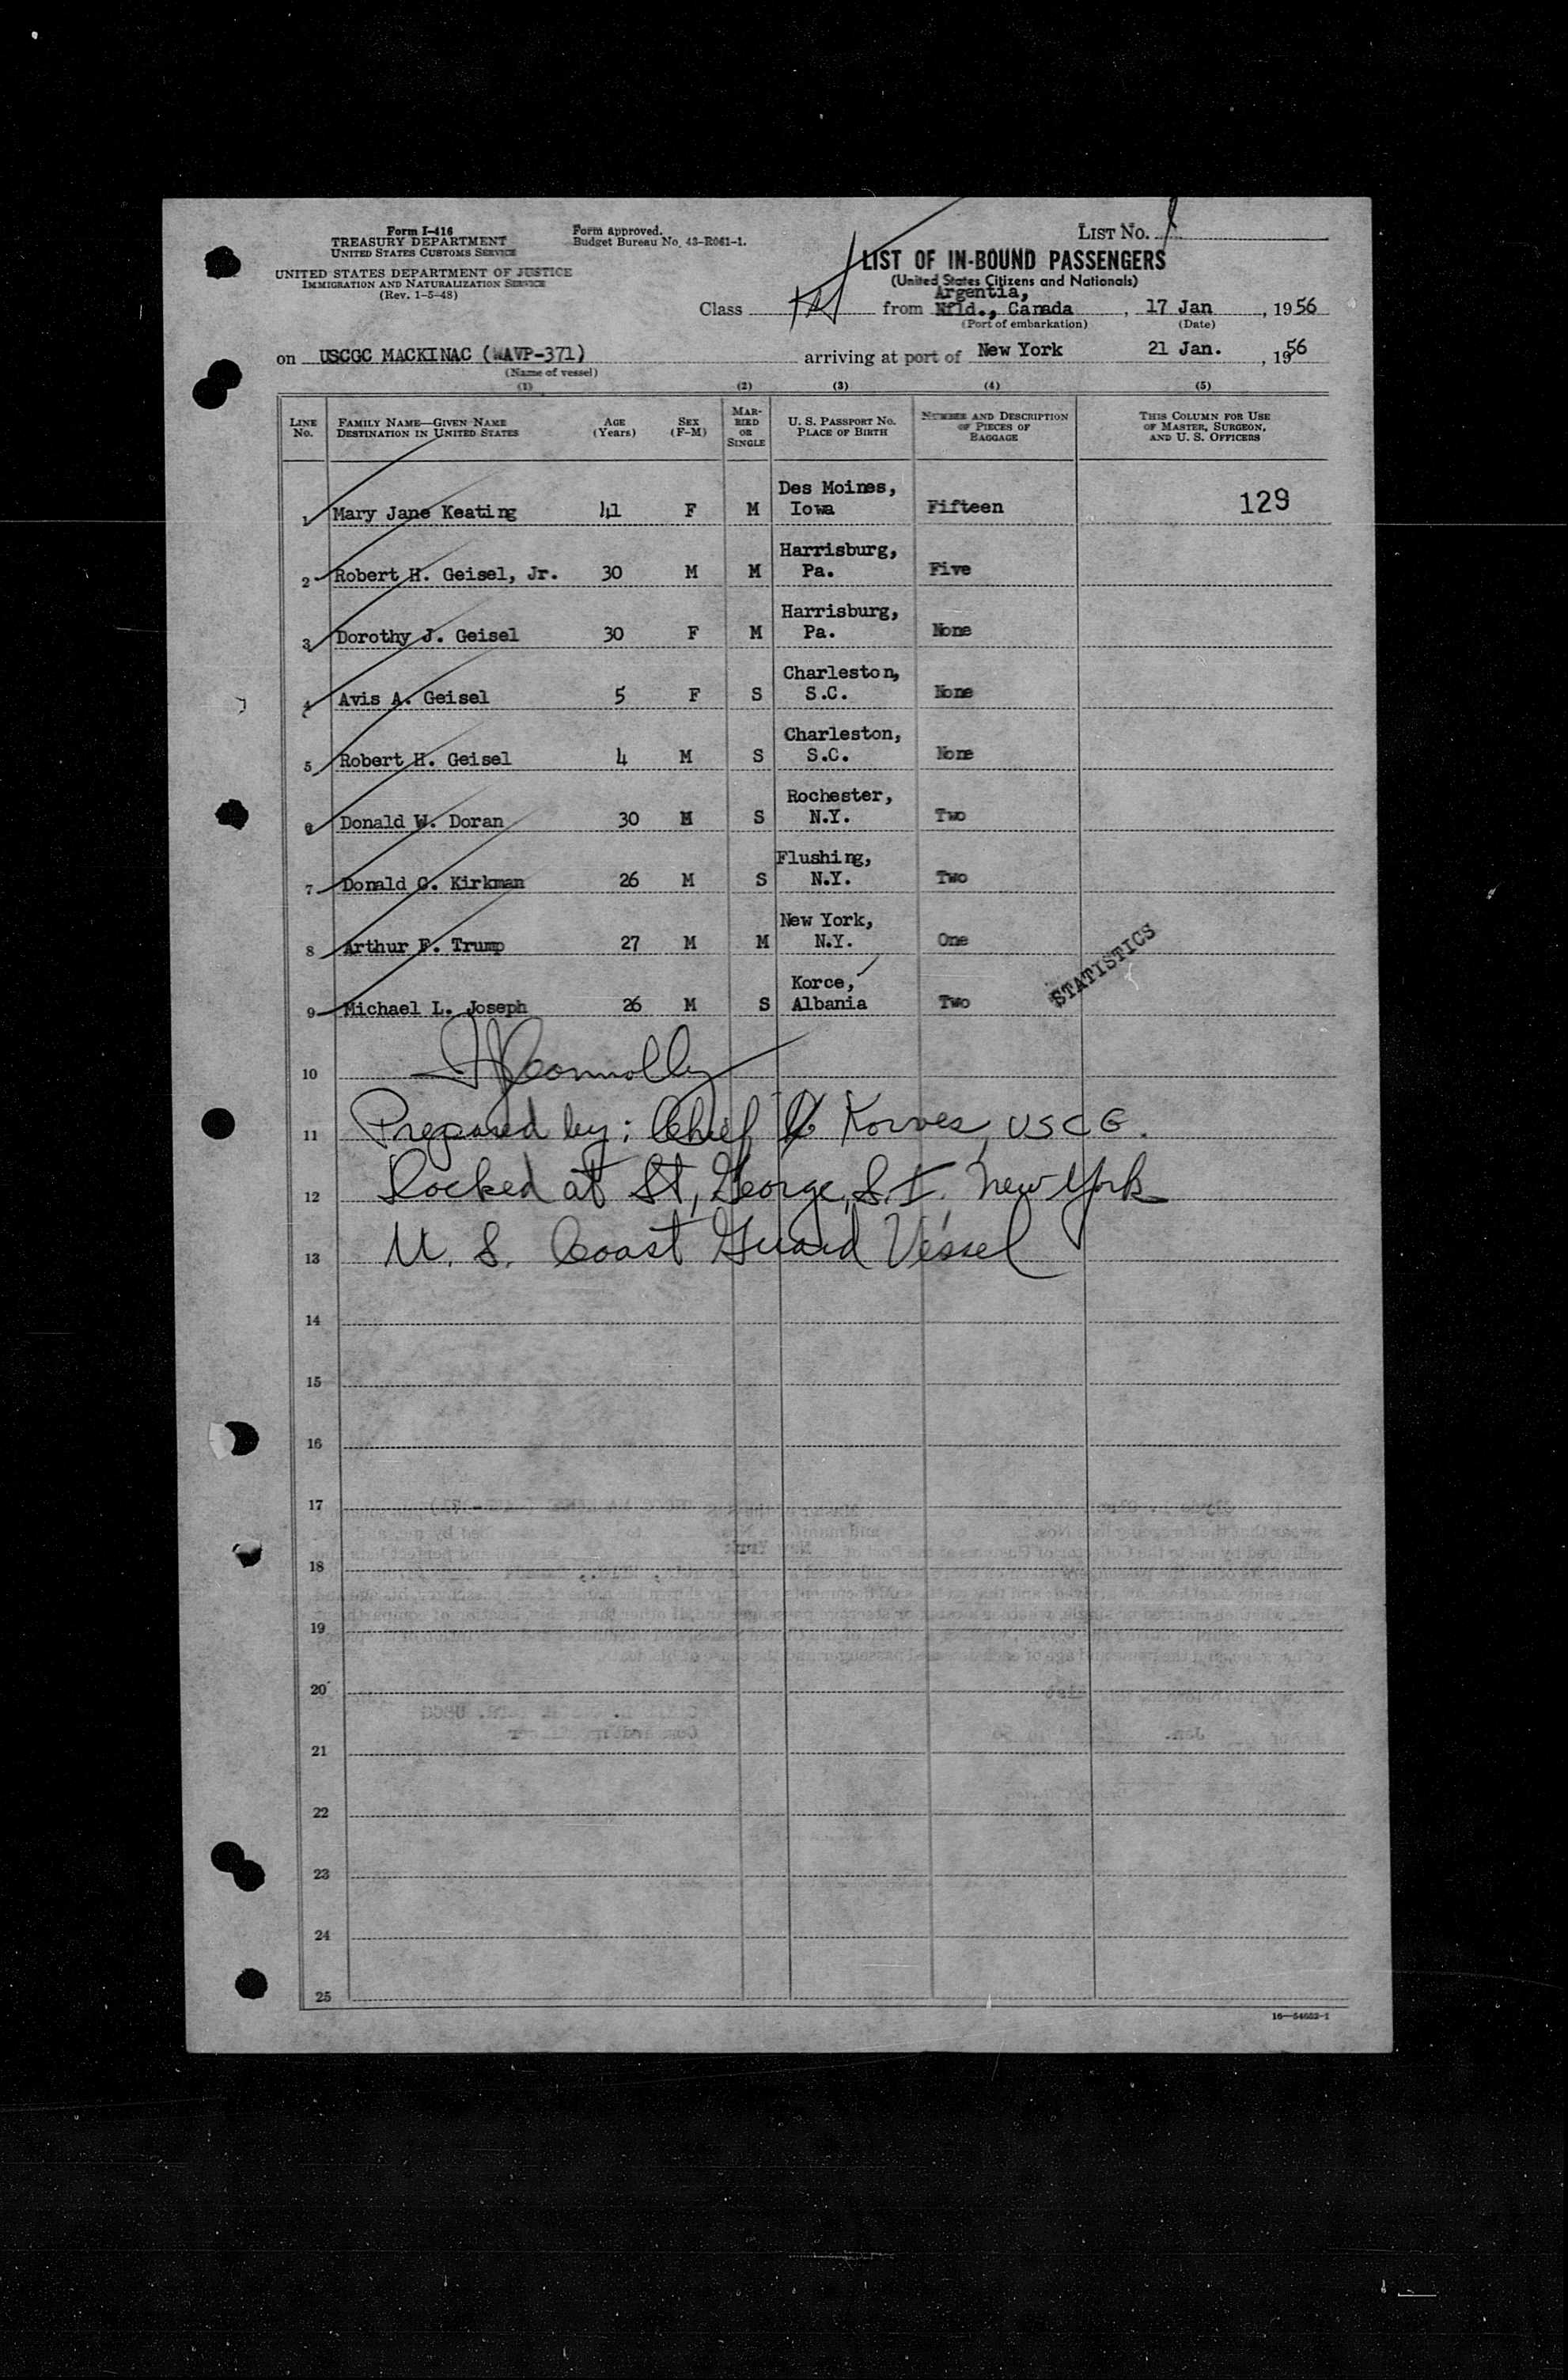 Form I-416
TREASURY DEPARTMENT
UNITED STATES CUSTOMS SERVICE
UNITED STATES DEPARTMENT OF JUSTICE
IMMIGRATION AND NATURALIZATION SERVICE
(Rev. 1-5-48)
Form approved.
Budget Bureau No. 43-R061-1.
LIST No.
LIST OF IN-BOUND PASSENGERS
(United States Citizens and Nationals)
Argentia,
Class from Nfld., Canada, 17 Jan, 1956
(Port of embarkation) (Date)
on USCGC MACKINAC (WAVP-371) arriving at port of New York 21 Jan., 1956
(Name of vessel)
(1) (2) (3) (4) (5)
LINE No. FAMILY NAME—GIVEN NAME DESTINATION IN UNITED STATES AGE (Years) SEX (F-M) MARRIED OR SINGLE U. S. PASSPORT NO. PLACE OF BIRTH NUMBER AND DESCRIPTION OF PIECES OF BAGGAGE THIS COLUMN FOR USE OF MASTER, SURGEON, AND U. S. OFFICERS
1 Mary Jane Keating 41 F M Des Moines, Iowa Fifteen 129
2 Robert H. Geisel, Jr. 30 M M Harrisburg, Pa. Five
3 Dorothy J. Geisel 30 F M Harrisburg, Pa. None
4 Avis A. Geisel 5 F S Charleston, S.C. None
5 Robert H. Geisel 4 M S Charleston, S.C. None
6 Donald W. Doran 30 M S Rochester, N.Y. Two
7 Donald C. Kirkman 26 M S Flushing, N.Y. Two
8 Arthur F. Trump 27 M M New York, N.Y. One
9 Michael L. Joseph 26 M S Korce, Albania Two
STATISTICS
10 Connolly
11 Prepared by: Chief Korves, USCG.
12 Docked at St. George, S.I. New York
13 U. S. Coast Guard Vessel
14
15
16
17
18
19
20
21
22
23
24
25
16—54652-1